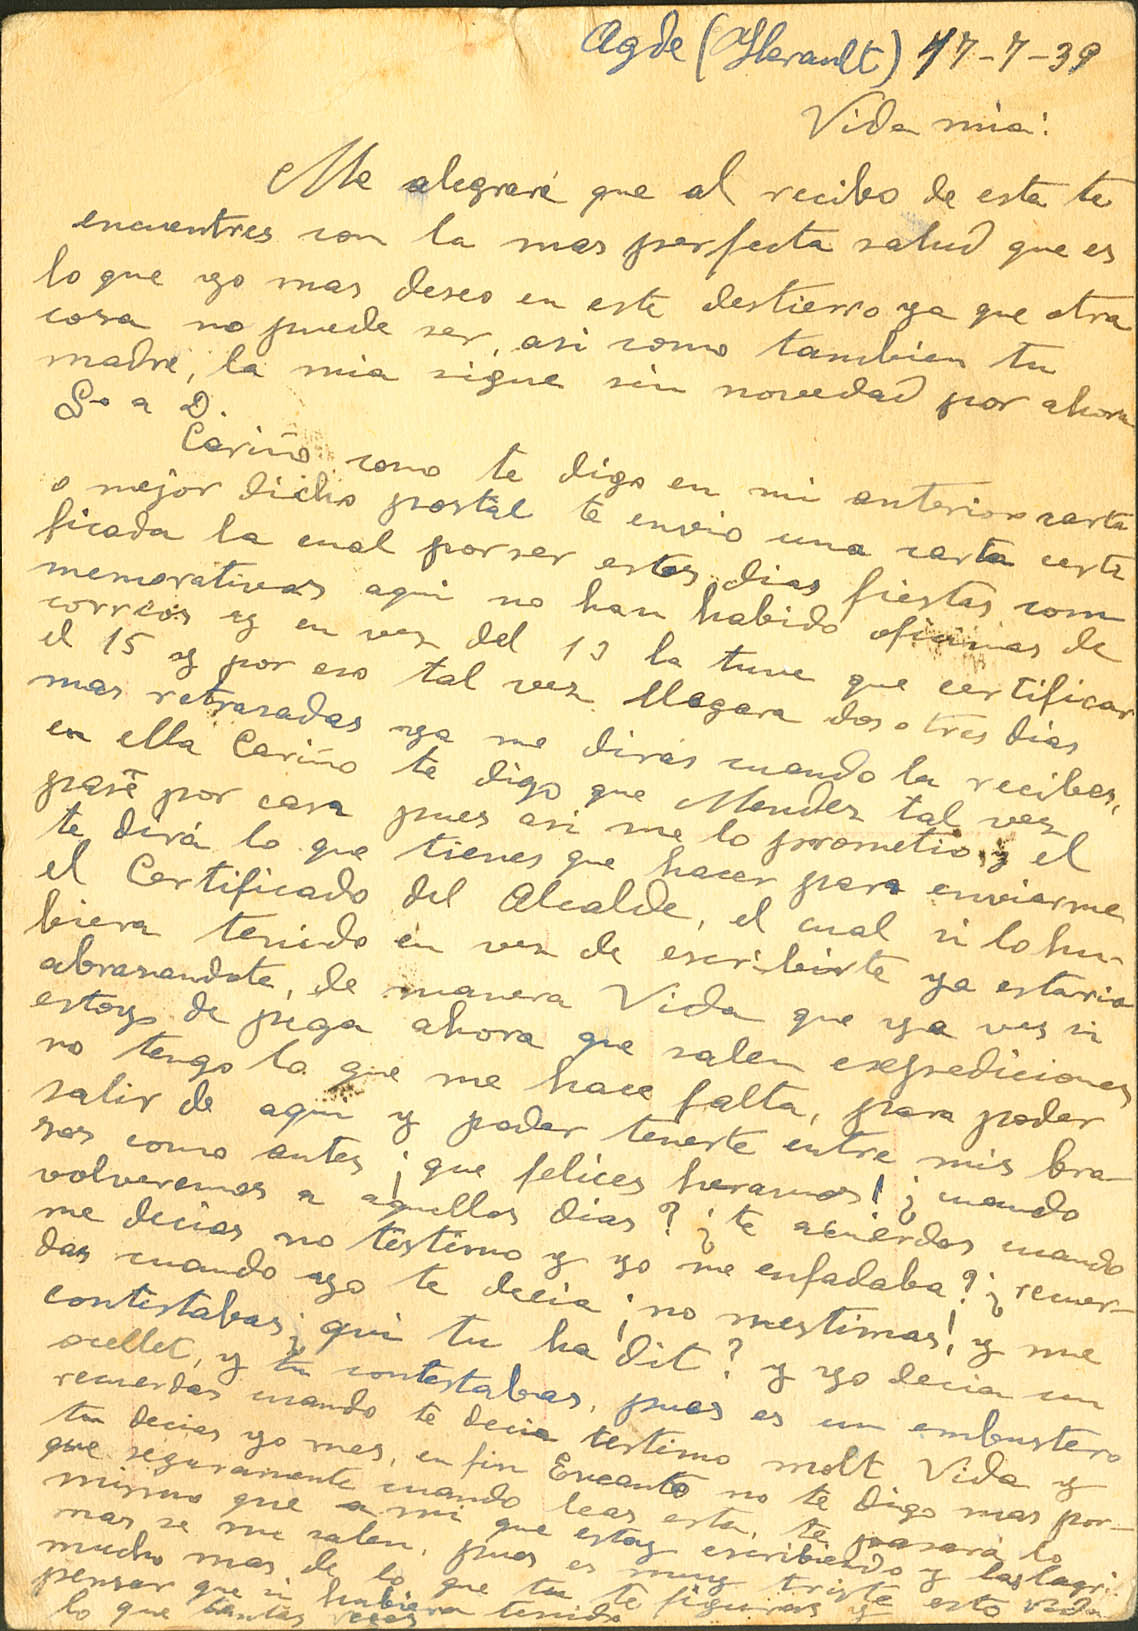 Agde (Herault) 17-7-39
Vida mia:
Me alegraré que al recibo de esta te
encuentres con la mas perfecta salud que es
lo que yo mas deseo en este destierro ya que otra
cosa no puede ser, asi como tambien tu
madre, la mia sigue sin novedad por ahora
G. a D.
Cariño como te digo en mi anterior carta
o mejor dicho postal te envio una carta certi
ficada la cual por ser estos dias fiestas com
memorativas aqui no han habido oficinas de
correos y en vez del 13 la tuve que certificar
el 15 y por eso tal vez llegara dos o tres dias
mas retrasadas ya me dirás cuando la recibes,
en ella Cariño te digo que Mendez tal vez
pase por casa pues asi me lo prometio y el
te dirá lo que tienes que hacer para enviarme
el Certificado del Alcalde, el cual si lo hu-
biera tenido en vez de escribirte ya estaria
abrasandote, de manera Vida que ya ves si
estoy de pega ahora que salen expediciones
no tengo lo que me hace falta, para poder
salir de aqui y poder tenerte entre mis bra-
sos como antes ¡que felices heramos! ¿cuando
volveremos a aquellos dias? ¿te acuerdas cuando
me decias no testimo y yo me enfadaba? ¿recuer-
das cuando yo te decia ¡no mestimas! y me
contestabas ¿qui tu ha dit? y yo decia un
ocellet, y tu contestabas, pues es un embustero
recuerdas cuando te decia testimo molt Vida y
tu decias yo mes, en fin Encanto no te digo mas por-
que seguramente cuando leas esta, te pasara lo
mismo que a mi que estoy escribiendo y las lagri-
mas se me salen, pues es muy triste esto Vida
mucho mas de lo que tu te figuras y
pensar que si hubiera tenido
lo que tantas veces